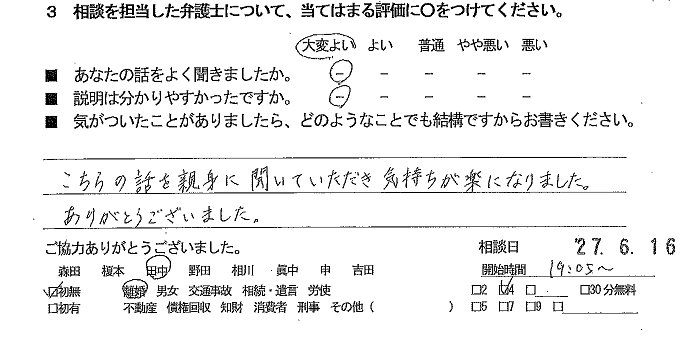 3 相談を担当した弁護士について、当てはまる評価に〇をつけてください。
大変よい よい 普通 やや悪い 悪い
■ あなたの話をよく聞きましたか。 － － － － －
■ 説明は分かりやすかったですか。 － － － － －
■ 気がついたことがありましたら、どのようなことでも結構ですからお書きください。
こちらの話を親身に聞いていただき気持ちが楽になりました。
ありがとうございました。
ご協力ありがとうございました。 相談日 '27.6.16
森田 榎本 田中 野田 相川 眞中 申 吉田 開始時間 19:05～
☑初無 離婚 男女 交通事故 相続・遺言 労使 □2 ☑4 □. □30分無料
□初有 不動産 債権回収 知財 消費者 刑事 その他( ) □5 □7 □9 □